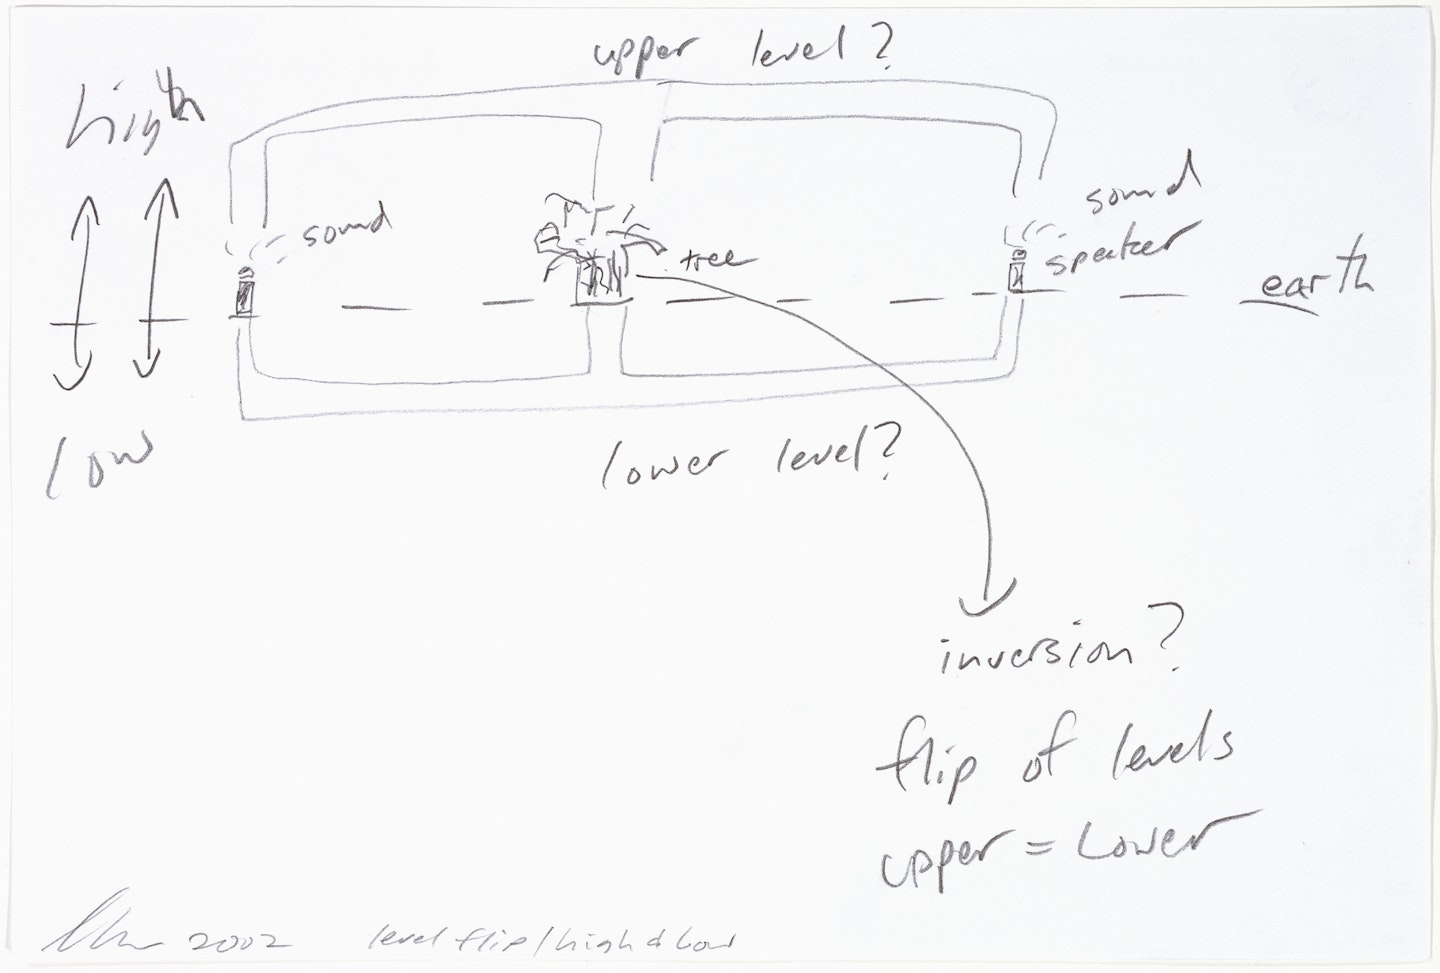 upper level?
high
sound
tree
sound
speaker
earth
low
lower level?
inversion?
flip of levels
upper = Lower
2002 level flip/high & low